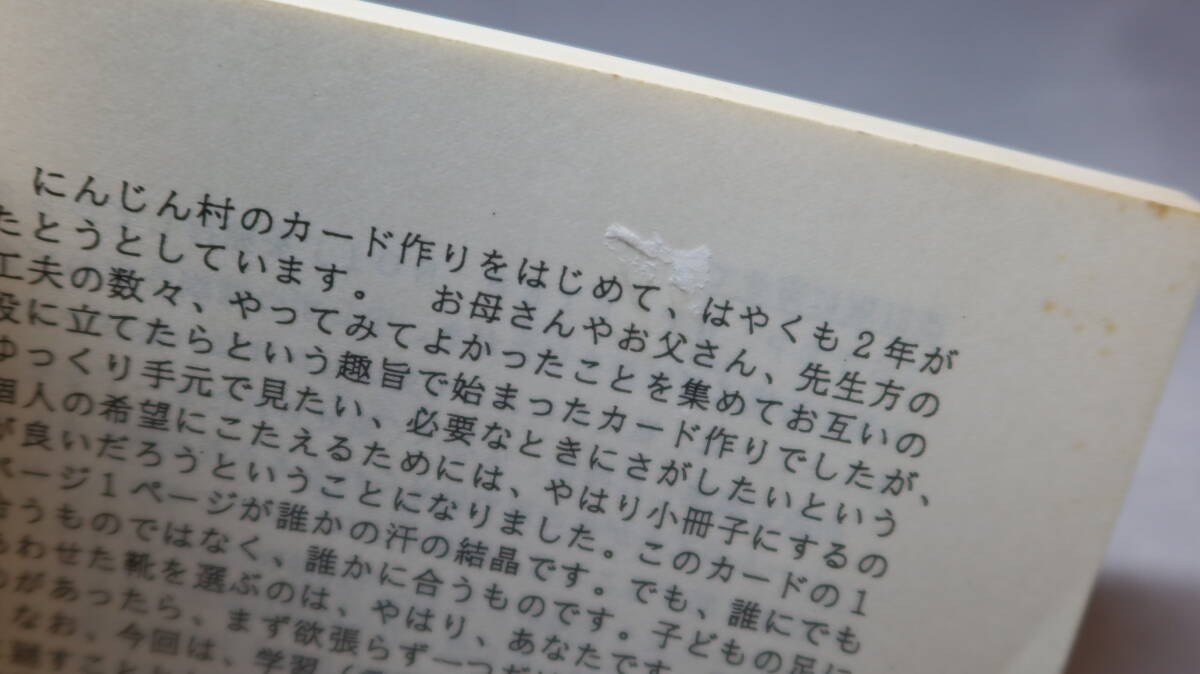 にんじん村のカード作りをはじめて、はやくも2年が
たとうとしています。　お母さんやお父さん、先生方の
工夫の数々、やってみてよかったことを集めてお互いの
役に立てたらという趣旨で始まったカード作りでしたが、
ゆっくり手元で見たい、必要なときにさがしたいという
個人の希望にこたえるためには、やはり小冊子にするの
が良いだろうということになりました。このカードの1
ページ1ページが誰かの汗の結晶です。でも、誰にでも
合うものではなく、誰かに合うものです。子どもの足に
あわせた靴を選ぶのは、やはり、あなたです
があったら、まず欲張らず一つだけ
なお、今回は、学習